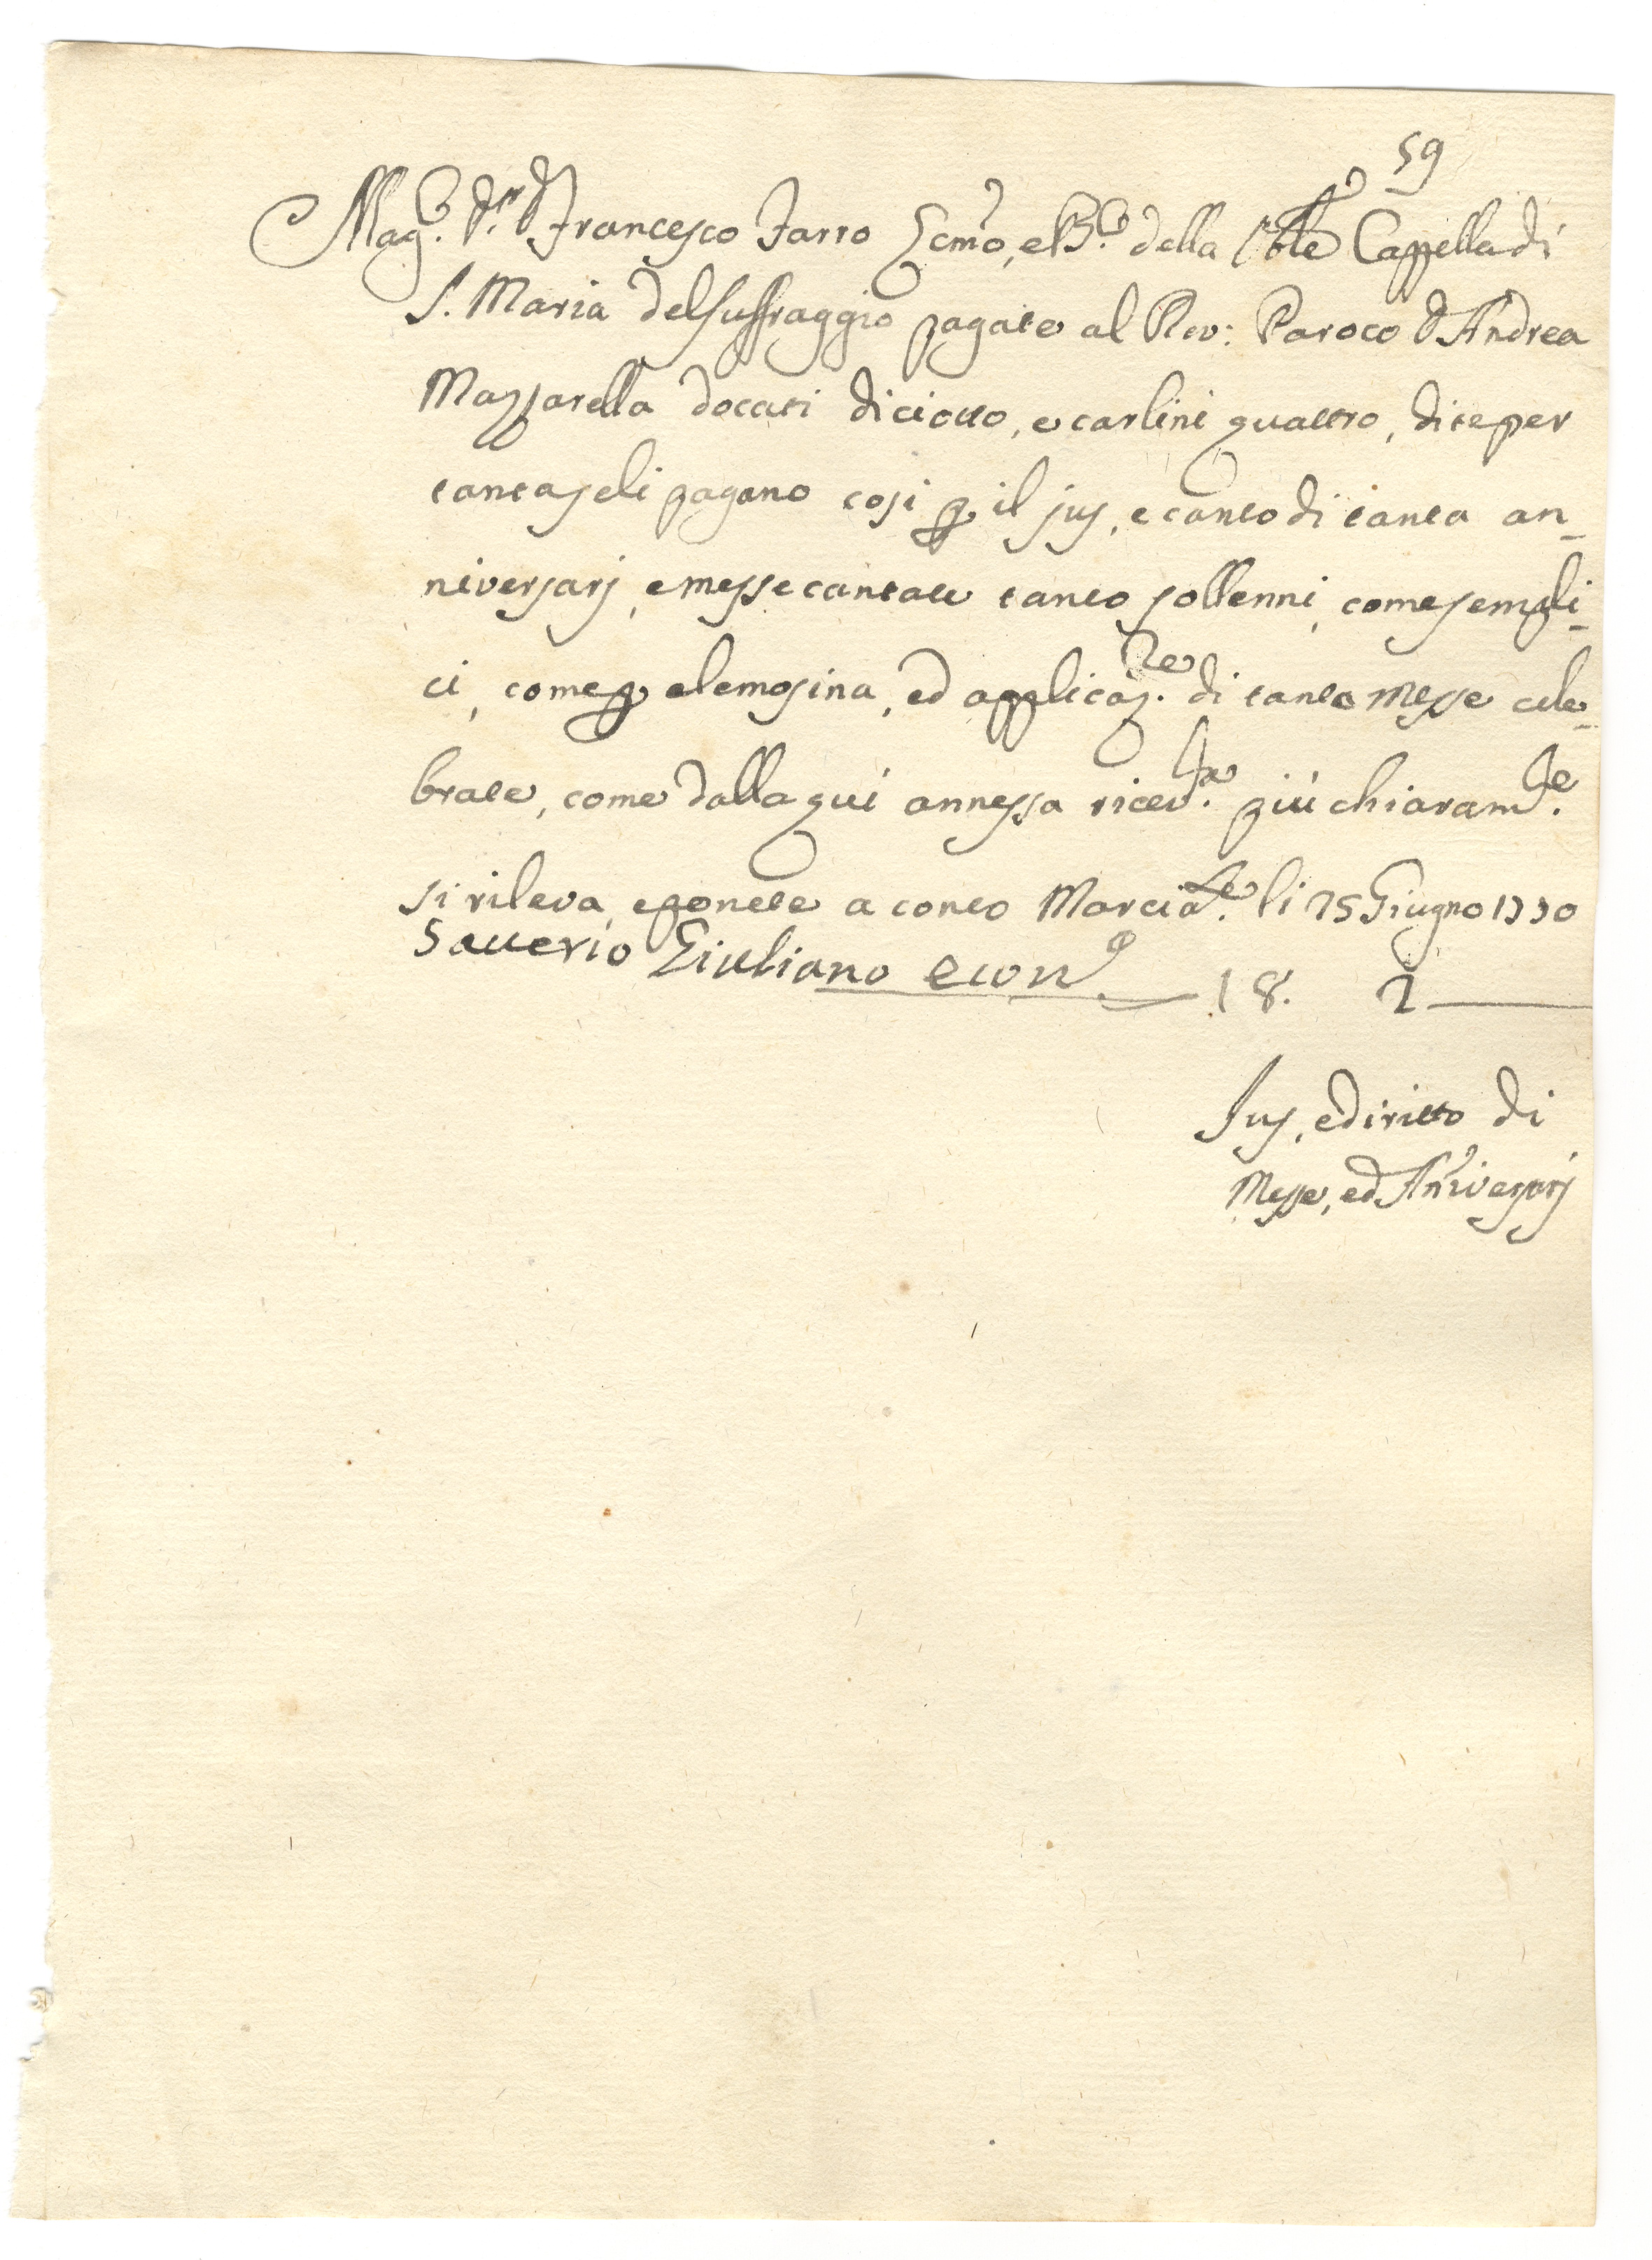 59
Mag.co D.r D. Francesco Farro Ecmo, e B.o della Ven.le Cappella di
S. Maria del Suffraggio pagate al Rev: Paroco D. Andrea
Mazzarella docati diciotto, e carlini quattro, dite per
tanta se li pagano cosi p il jus, e canto di tanta an-
niversarj, e messe cantate tanto sollenni, come sempli-
ci, come p elemosina, ed applicaz.ne di tante Messe cele-
brate, come dalla qui annessa ricev.ta più chiaram.te
si rileva, e ponete a conto Marcia.le li 25 Giugno 1790
Saverio Giuliano econ.o 18. 2
Jus, e diritto di
Messe, ed Anniversarj